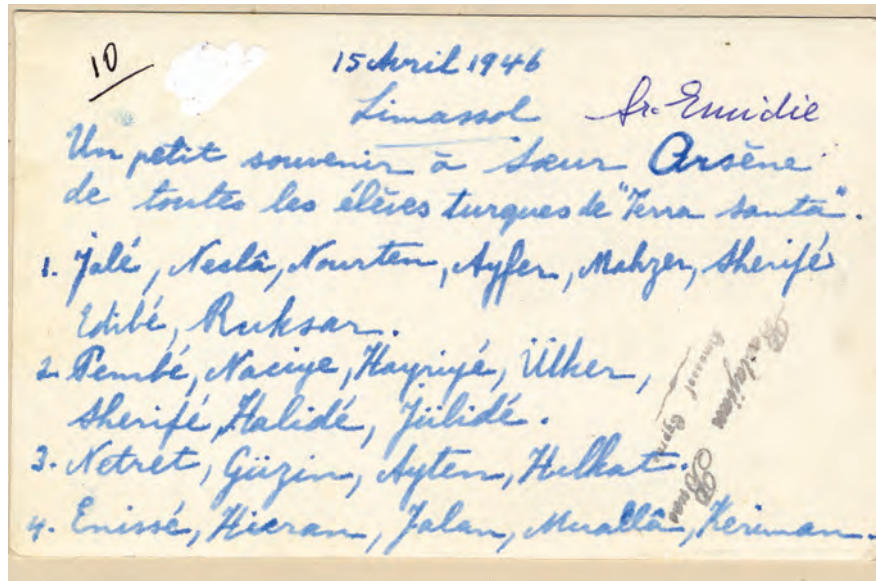 10
15 Avril 1946
Limassol
Sr. Emidie
Un petit souvenir à Sœur Arsène
de toutes les élèves turques de "Terra Santa".
1. Jalé, Neslâ, Nourten, Ayfer, Mahzer, Sherifé
Edibé, Ruksar.
2. Pembé, Naciye, Hayriyé, Ülker,
Sherifé, Halidé, Jülidé.
3. Netret, Güzin, Ayten, Hulkat.
4. Enissé, Hicran, Jalan, Muallâ, Keriman.
Limassol Cyprus